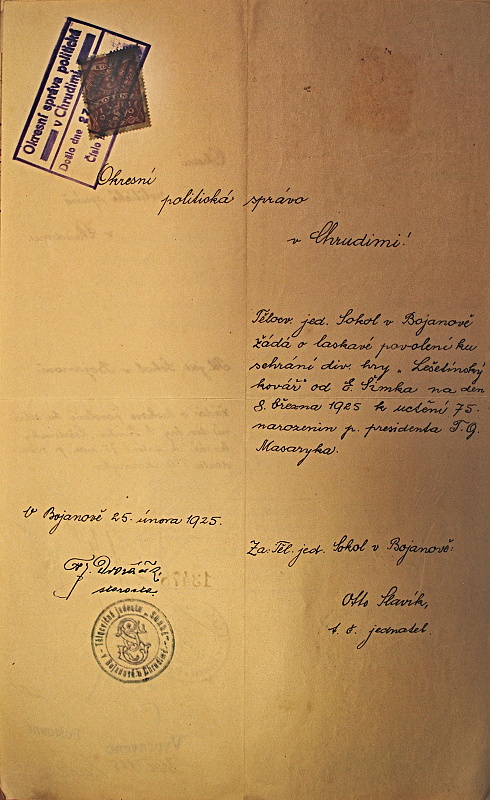 Okresní správa politická
v Chrudimi
Došlo dne 27
Číslo
Okresní
politická správo
v Chrudimi!
Tělocv. jed. Sokol v Bojanově
žádá o laskavé povolení ku
sehrání div. hry „Lešetínský
kovář" od E. Šimka na den
8. března 1925 k uctění 75.
narozenin p. presidenta T. G.
Masaryka.
V Bojanově 25. února 1925.
Za Těl. jed. Sokol v Bojanově:
Fj. Dvořák,
starosta.
Otto Slavík,
t. č. jednatel.
Tělocvičná jednota „Sokol"
v Bojanově u Chrudimě